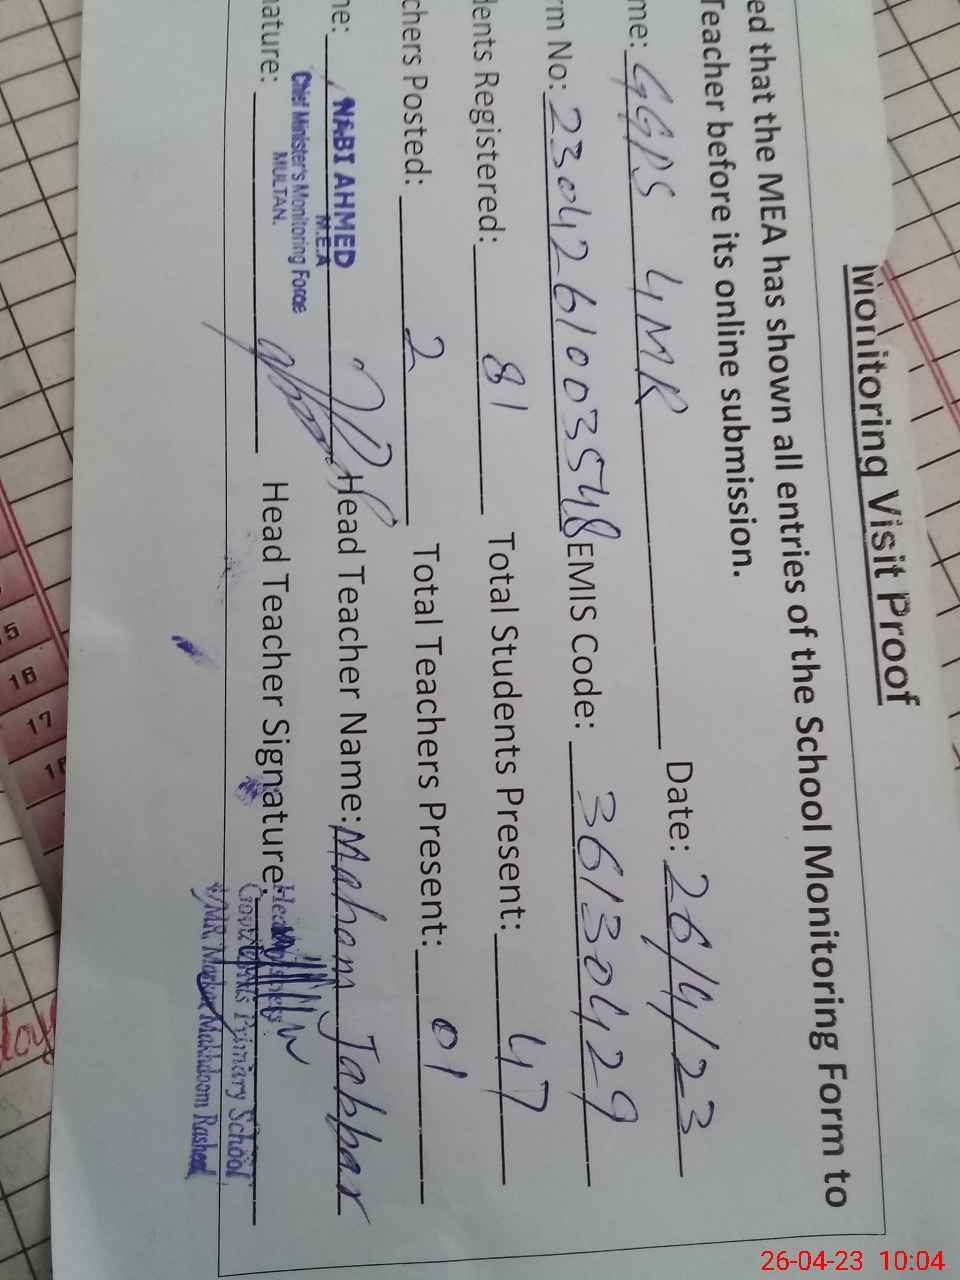 Monitoring Visit Proof
ed that the MEA has shown all entries of the School Monitoring Form to
Teacher before its online submission.
me: GGPS 4MR Date: 26/4/23
rm No: 23042610035 48 EMIS Code: 36130429
dents Registered: 81 Total Students Present: 47
chers Posted: 2 Total Teachers Present: 01
ne: NABI AHMED Head Teacher Name: Maham Jabbar
M.E.A
Chief Minister's Monitoring Force
MULTAN.
nature: Head Teacher Signature:
Govt. Primary School
4/MR, Makhdoom Rasheed
15
16
17
18
26-04-23 10:04